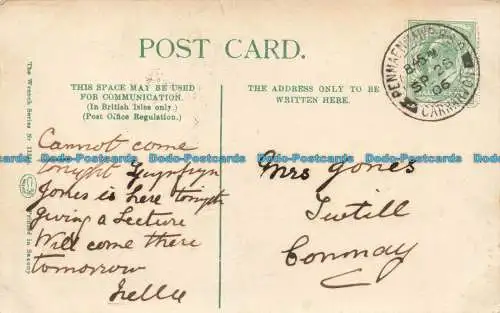 POST CARD.
THIS SPACE MAY BE USED
FOR COMMUNICATION.
(In British Isles only.)
(Post Office Regulation.)
THE ADDRESS ONLY TO BE
WRITTEN HERE.
PENMAENMAWR
845 PM
SP 26
06
CARNARVON
The Wrench Series
Printed in Saxony
Cannot come
tonight
Jones is here tonight
giving a Lecture
Will come there
tomorrow
Nellie
Mrs Jones
Twtill
Conway
Dodo-Postcards Dodo-Postcards Dodo-Postcards Dodo-Postcards Dodo-Postcards Dodo-Postcards